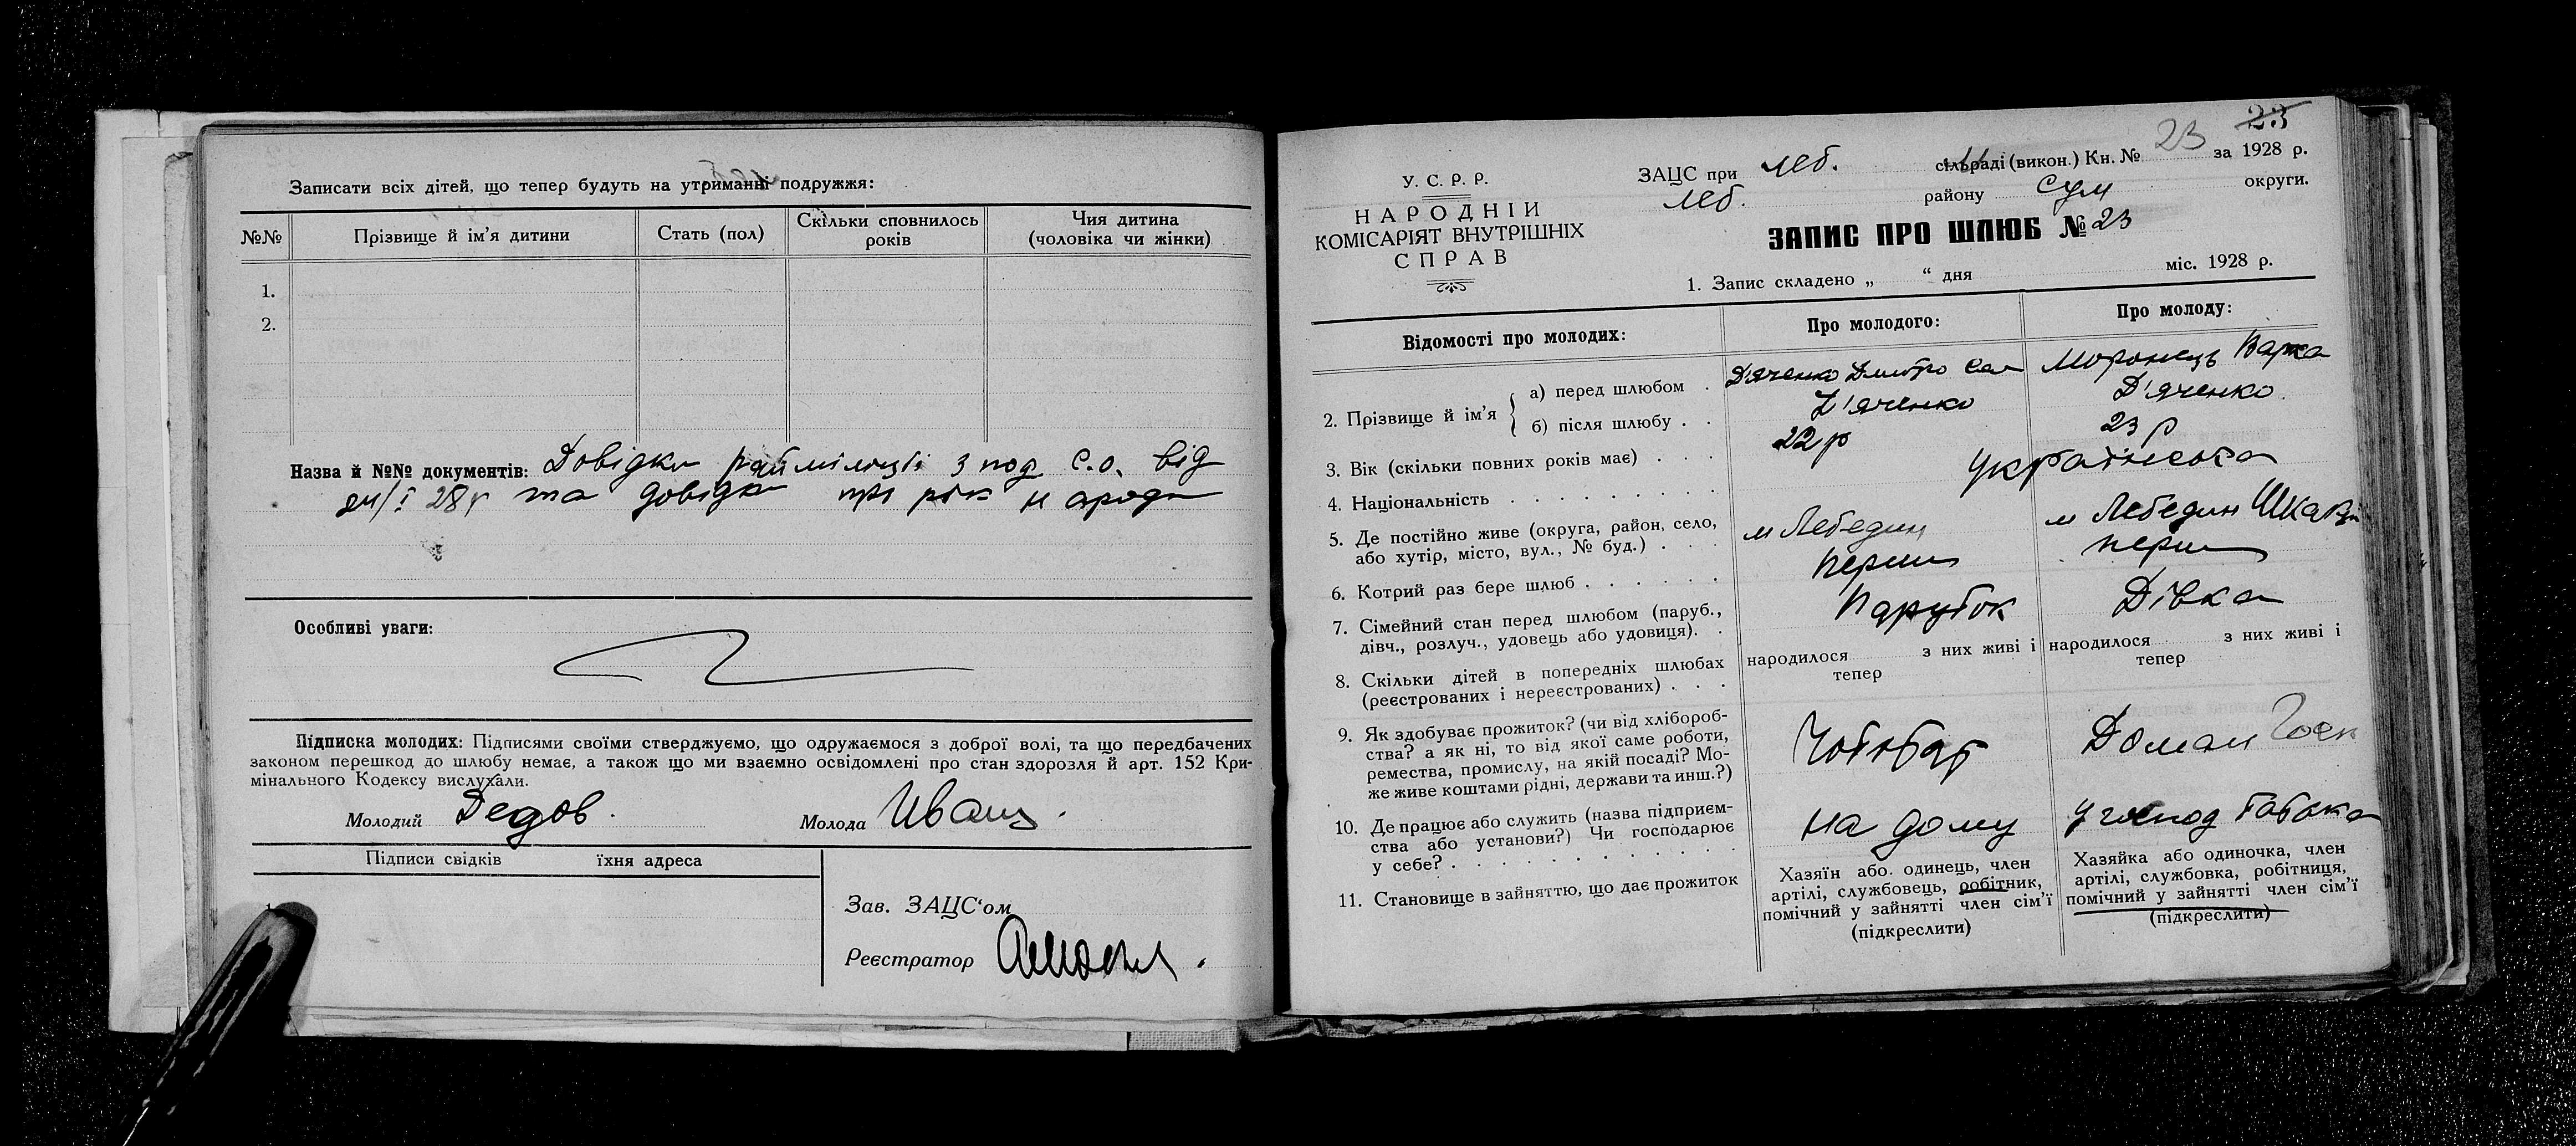 Записати всіх дітей, що тепер будуть на утриманні подружжя:
№№
Прізвище й ім'я дитини
Стать (пол)
Скільки сповнилось
років
Чия дитина
(чоловіка чи жінки)
1.
2.
Назва й №№ документів: Довідки райміліції з под. С.О. від
24/I 28 р та довідка про рік народ
Особливі уваги:
Підписка молодих: Підписями своїми стверджуємо, що одружаємося з доброї волі, та що передбачених
законом перешкод до шлюбу немає, а також що ми взаємно освідомлені про стан здорозля й арт. 152 Кри-
мінального Кодексу вислухали.
Молодий Дедов.
Молода Иванц.
Підписи свідків їхня адреса
Зав. ЗАЦС'ом
Реєстратор
23
У. С. Р. Р.
НАРОДНІЙ
КОМІСАРІЯТ ВНУТРІШНІХ
СПРАВ
ЗАЦС при Леб. сільраді (викон.) Кн. № 23 за 1928 р.
Леб. району Сум округи.
ЗАПИС ПРО ШЛЮБ № 23
1. Запис складено „ “ дня міс. 1928 р.
Відомості про молодих:
Про молодого:
Про молоду:
2. Прізвище й ім'я
а) перед шлюбом . Д'яченко Дмитро Сем Моронець Варка
б) після шлюбу . . Д'яченко Д'яченко
3. Вік (скільки повних років має) . . . 22 р 23 р
4. Національність . . . . . . . . . Українська
5. Де постійно живе (округа, район, село,
або хутір, місто, вул., № буд.) . . . м Лебедин м Лебедин
6. Котрий раз бере шлюб . . . . . . перш перш
7. Сімейний стан перед шлюбом (паруб.,
дівч., розлуч., удовець або удовиця). . Парубок Дівка
8. Скільки дітей в попередніх шлюбах
(реєстрованих і нереєстрованих) . . .
народилося з них живі і
тепер
народилося з них живі і
тепер
9. Як здобуває прожиток? (чи від хлібороб-
ства? а як ні, то від якої саме роботи,
ремества, промислу, на якій посаді? Мо-
же живе коштами рідні, держави та инш.?)
Чоботар
Домаш Госп
10. Де працює або служить (назва підприєм-
ства або установи?) Чи господарює
у себе? . . . . . . . . . . . .
на дому
у господ
11. Становище в зайняттю, що дає прожиток
Хазяїн або одинець, член
артілі, службовець, робітник,
помічний у зайнятті член сім'ї
(підкреслити)
Хазяйка або одиночка, член
артілі, службовка, робітниця,
помічний у зайнятті член сім'ї
(підкреслити)